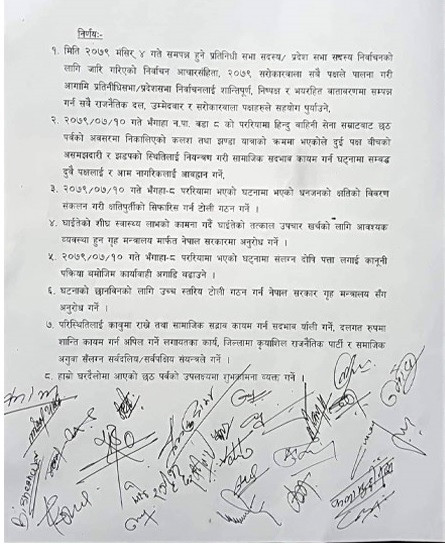 निर्णयः-
१. मिति २०७९ मंसिर ४ गते सम्पन्न हुने प्रतिनिधी सभा सदस्य/ प्रदेश सभा सदस्य निर्वाचनको
लागि जारि गरिएको निर्वाचन आचारसंहिता, २०७९ सरोकारवाला सबै पक्षले पालना गरी
आगामि प्रतिनीधीसभा/प्रदेशसभा निर्वाचनलाई शान्तिपूर्ण, निष्पक्ष र भयरहित वातावरणमा सम्पन्न
गर्न सबै राजनैतिक दल, उम्मेदवार र सरोकारवाला पक्षहरुले सहयोग पुर्याउने,
२. २०७९/०७/१० गते भँगाहा न.पा. वडा ८ को परिरियामा हिन्दु बाहिनी सेना सम्राटबाट छठ
पर्वको अवसरमा निकालिएको कलश तथा झण्डा यात्राको क्रममा भएकोले दुई पक्ष बीचको
असमझदारी र झडपको स्थितिलाई नियन्त्रण गरी सामाजिक सदभाव कायम गर्न घट्नामा सम्बद्ध
दुवै पक्षलाई र आम नागरिकलाई आवह्वान गर्ने,
३. २०७९/०७/१० गते भँगहा-८ परिरियामा भएको घटनामा भएको धनजनको क्षतिको विवरण
संकलन गरी क्षतिपुर्तीको सिफारिस गर्न टोली गठन गर्ने ।
४. घाईतेको शीघ्र स्वास्थ्य लाभको कामना गर्दै घाईतेको तत्काल उपचार खर्चको लागि आवश्यक
व्यवस्था हुन गृह मन्त्रालय मार्फत नेपाल सरकारमा अनुरोध गर्ने ।
५. २०७९/०७/१० गते भँगहा-८ परिरियामा भएको घट्नामा संलग्न दोषि पत्ता लगाई कानूनी
पक्रिया बमोजिम कार्यवाही अगाडि बढाउने ।
६. घटनाको छानबिनको लागि उच्च स्तरिय टोली गठन गर्न नेपाल सरकार गृह मन्त्रालय सँग
अनुरोध गर्ने ।
७. परिस्थितिलाई काबुमा राख्ने तथा सामाजिक सद्भाव कायम गर्न सदभाव र्याली गर्ने, दलगत रुपमा
शान्ति कायम गर्न अपिल गर्ने लगायतका कार्य, जिल्लामा कृयाशिल राजनैतिक पार्टी र सामाजिक
अगुवा संलग्न सर्वदलिय/सर्वपक्षिय संयन्त्रले गर्ने ।
८. हाम्रो घरदैलोमा आएको छठ पर्वको उपलक्ष्यमा शुभकामना व्यक्त गर्ने